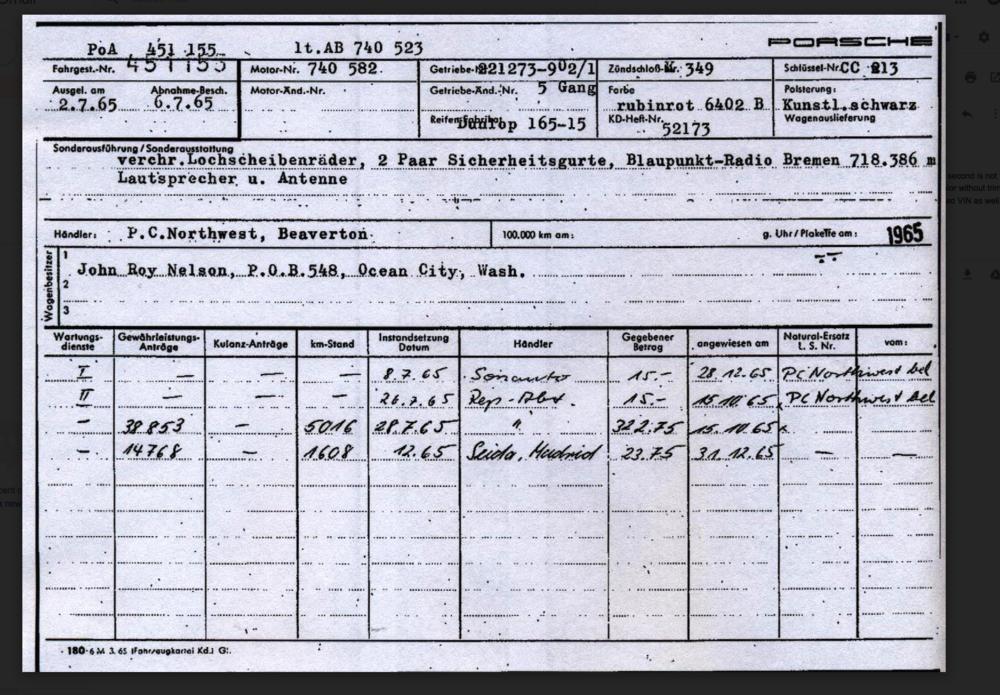 PoA 451 155 lt.AB 740 523 PORSCHE
Fahrgest.-Nr. 451155 Motor-Nr. 740 582 Getriebe- 221273-902/1 Zündschloß-Nr. 349 Schlüssel-Nr. CC 213
Ausgel. am Abnahme-Besch. Motor-Änd.-Nr. Getriebe-Änd.-Nr. 5 Gang Farbe Polsterung:
2.7.65 6.7.65 rubinrot 6402 B Kunstl.schwarz
Reifenfabrikat Dunlop 165-15 KD-Heft-Nr. 52173 Wagenauslieferung
Sonderausführung / Sonderausstattung
verchr.Lochscheibenräder, 2 Paar Sicherheitsgurte, Blaupunkt-Radio Bremen 718.386 m
Lautsprecher u. Antenne
Händler: P.C.Northwest, Beaverton 100.000 km am: g. Uhr / Plakette am: 1965
Wagenbesitzer
1
John Roy Nelson, P.O.B.548, Ocean City, Wash.
2
3
Wartungs-dienste Gewährleistungs-Anträge Kulanz-Anträge km-Stand Instandsetzung Datum Händler Gegebener Betrag angewiesen am Natural-Ersatz L. S. Nr. vom:
I — — — 8.7.65 Sonauto 15.- 28.12.65 PC Northwest bel
II — — — 26.7.65 Rep-Abt. 15.- 15.10.65 PC Northwest bel
— 38853 — 5016 28.7.65 " 322.75 15.10.65
— 14768 — 1608 12.65 Seida, Madrid 23.75 31.12.65 — —
180-6 M 3. 65 (Fahrzeugkartei Kd.) G.